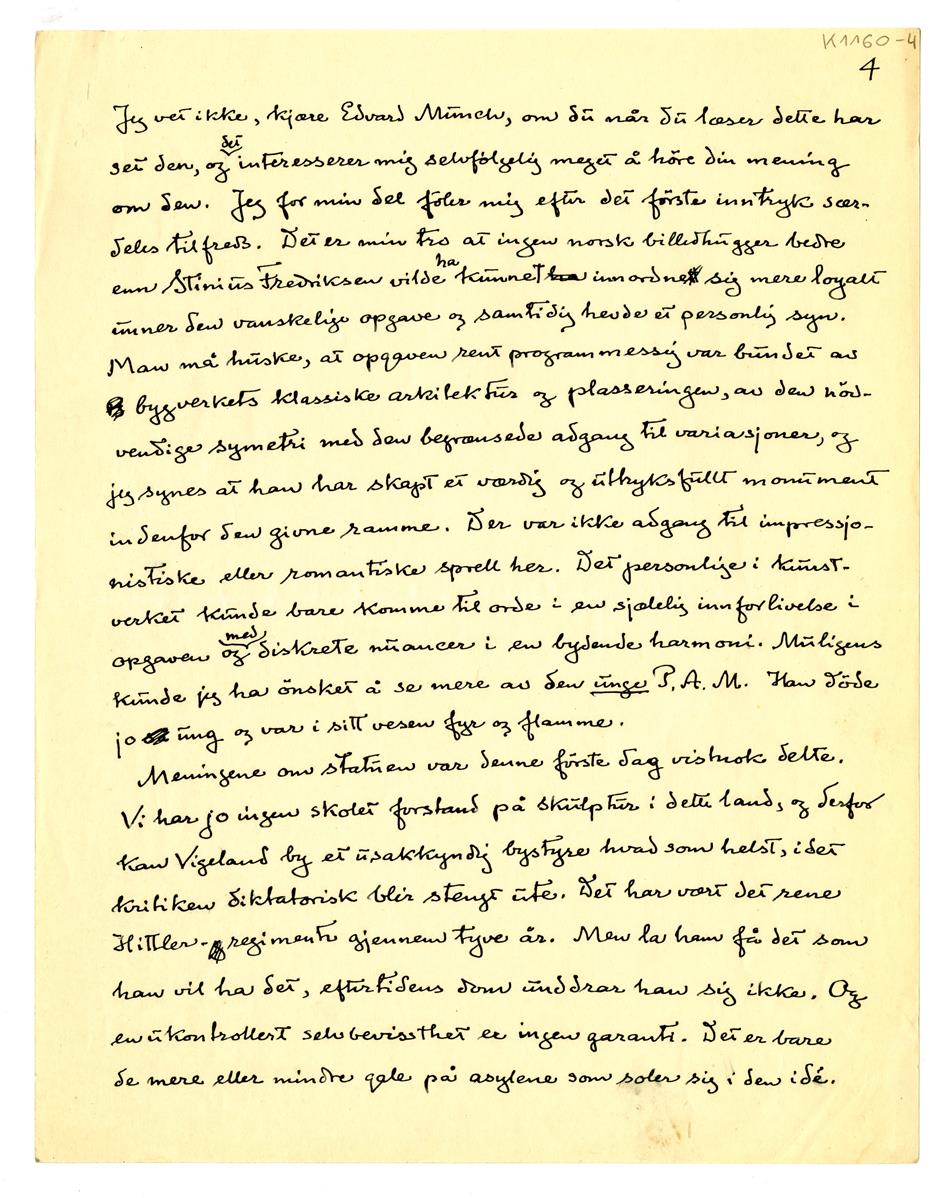 K1160-4
4
Jeg vet ikke, kjære Edvard Munch, om du når du læser dette har
det
set den, og interesserer mig selvfølgelig meget å høre din mening
om den. Jeg for min del føler mig efter det første inntryk sær-
deles tilfreds. Det er min tro at ingen norsk billedhugger bedre
ha
enn Stinius Fredriksen vilde kunnet ha innordnet sig mere loyalt
unner den vanskelige opgave og samtidig hevde et personlig syn.
Man må huske, at opgaven rent programmessig var bundet av
bygverkets klassiske arkitektur og plasseringen, av den nöd-
vendige symetri med den begrænsede adgang til variasjoner, og
jeg synes at han har skapt et værdig og uttryksfullt monument
indenfor den givne ramme. Der var ikke adgang til impressjo-
nistiske eller romantiske sprell her. Det personlige i kunst-
verket kunde bare komme til orde i en sjælelig innforlivelse i
med
opgaven og diskrete nuancer i en bydende harmoni. Muligens
kunde jeg ha önsket å se mere av den unge P. A. M. Han döde
jo ung og var i sitt vesen fyr og flamme.
Meningene om statuen var denne förste dag vistnok delte.
Vi har jo ingen skolet forstand på skulptur i dette land, og derfor
kan Vigeland by et usakkyndig bystyre hvad som helst, idet
kritiken diktatorisk blir stengt ute. Det har vært det rene
Hittler-regimente gjennem tyve år. Men la ham få det som
han vil ha det, eftertidens dom unddrar han sig ikke. Og
en ukontrollert selvbevissthet er ingen garanti. Det er bare
de mere eller mindre gale på asylene som soler sig i den idé.